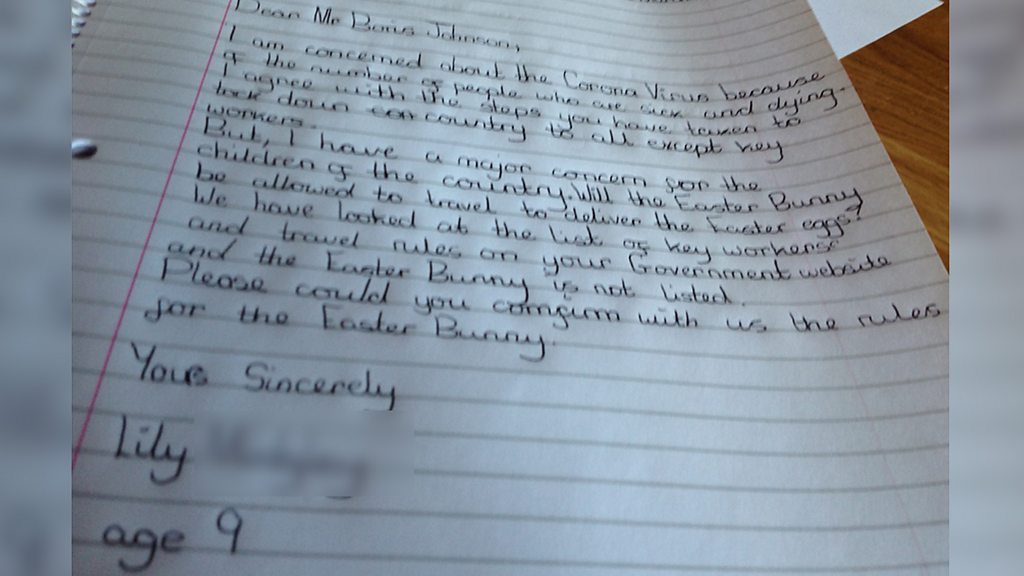 Dear Mr Boris Johnson,
I am concerned about the Corona Virus because
of the number of people who are sick and dying.
I agree with the steps you have taken to
lock down our country to all except key
workers.
But, I have a major concern for the
children of the country. Will the Easter Bunny
be allowed to travel to deliver the Easter eggs?
We have looked at the list of key workers
and travel rules on your Government website
and the Easter Bunny is not listed.
Please could you comfirm with us the rules
for the Easter Bunny.
Yours Sincerely
Lily
age 9